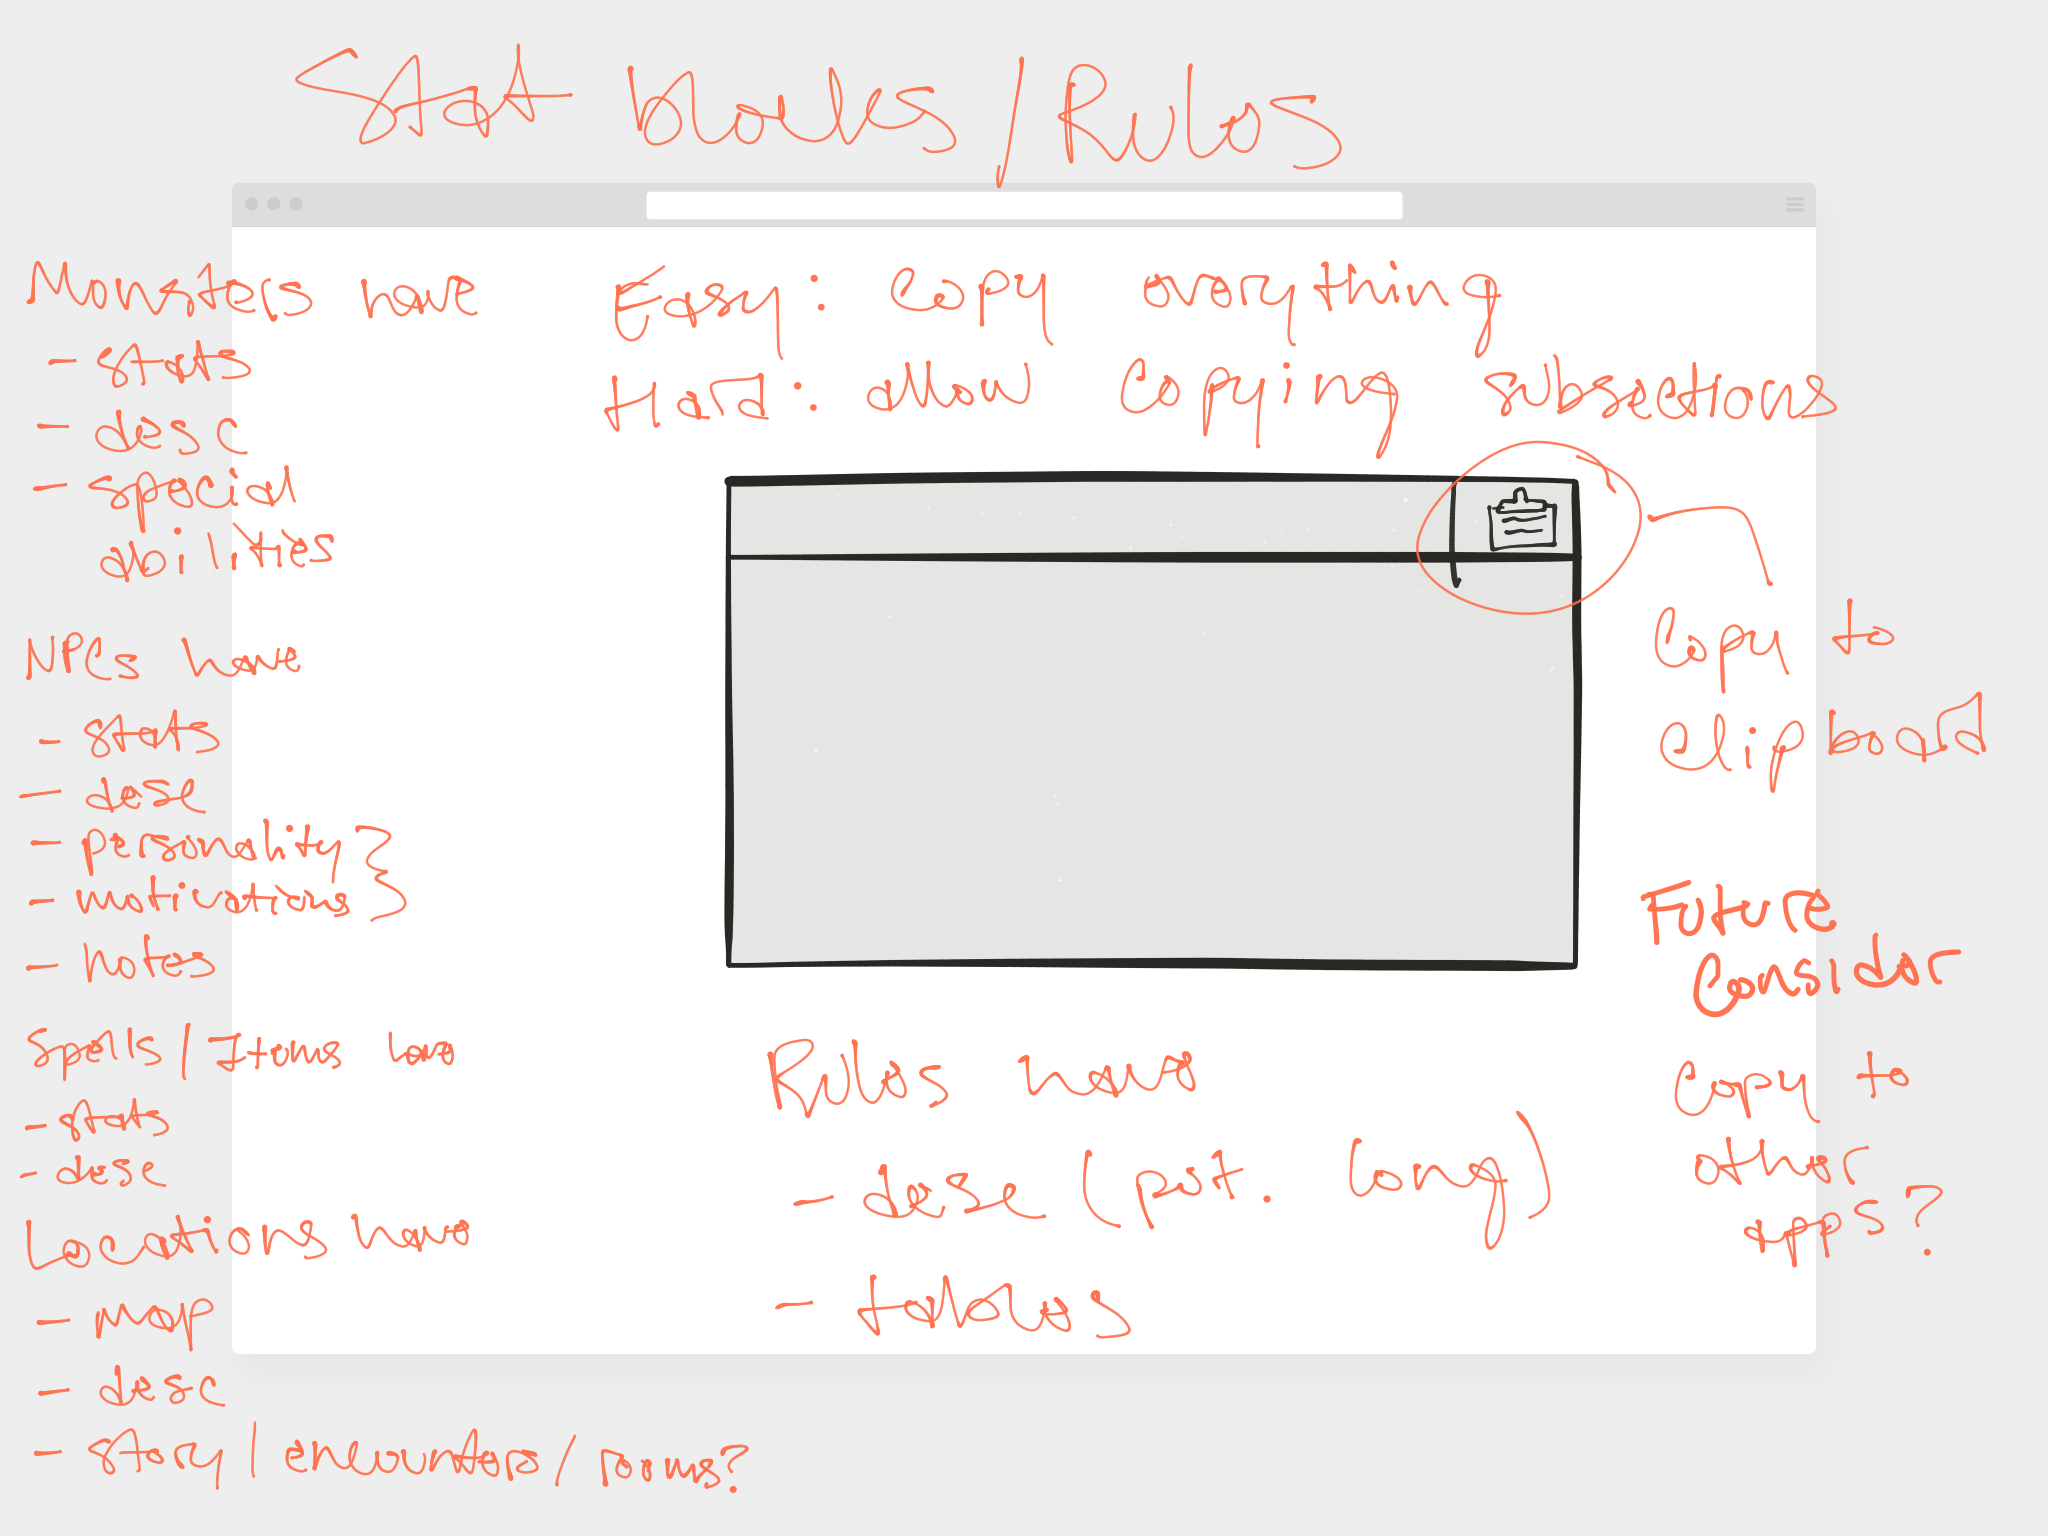 Stat blocks/Rules
Monsters have
- stats
- desc
- special
abilities
NPCs have
- stats
- desc
- personality }
- motivations }
- notes
Spells/Items have
- stats
- desc
Locations have
- map
- desc
- story/encounters/rooms?
Easy: Copy everything
Hard: allow copying subsections
Copy to
clipboard
Future
Consider
Copy to
other
apps?
Rules have
- desc (pot. long)
- tables